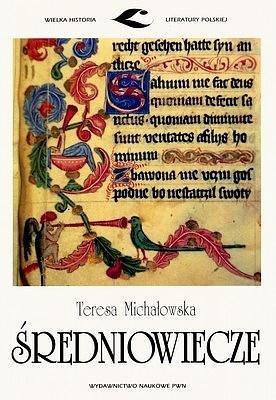 WIELKA HISTORIA LITERATURY POLSKIEJ
recht gesehen hatte syn an
Saluum me fac deus
quoniam defecit sa
nctus · quoniam diminute
sunt ueritates afilijs ho
minum
Zbawona me uczin gos
podne bo nestatczil swoty
Teresa Michałowska
ŚREDNIOWIECZE
WYDAWNICTWO NAUKOWE PWN